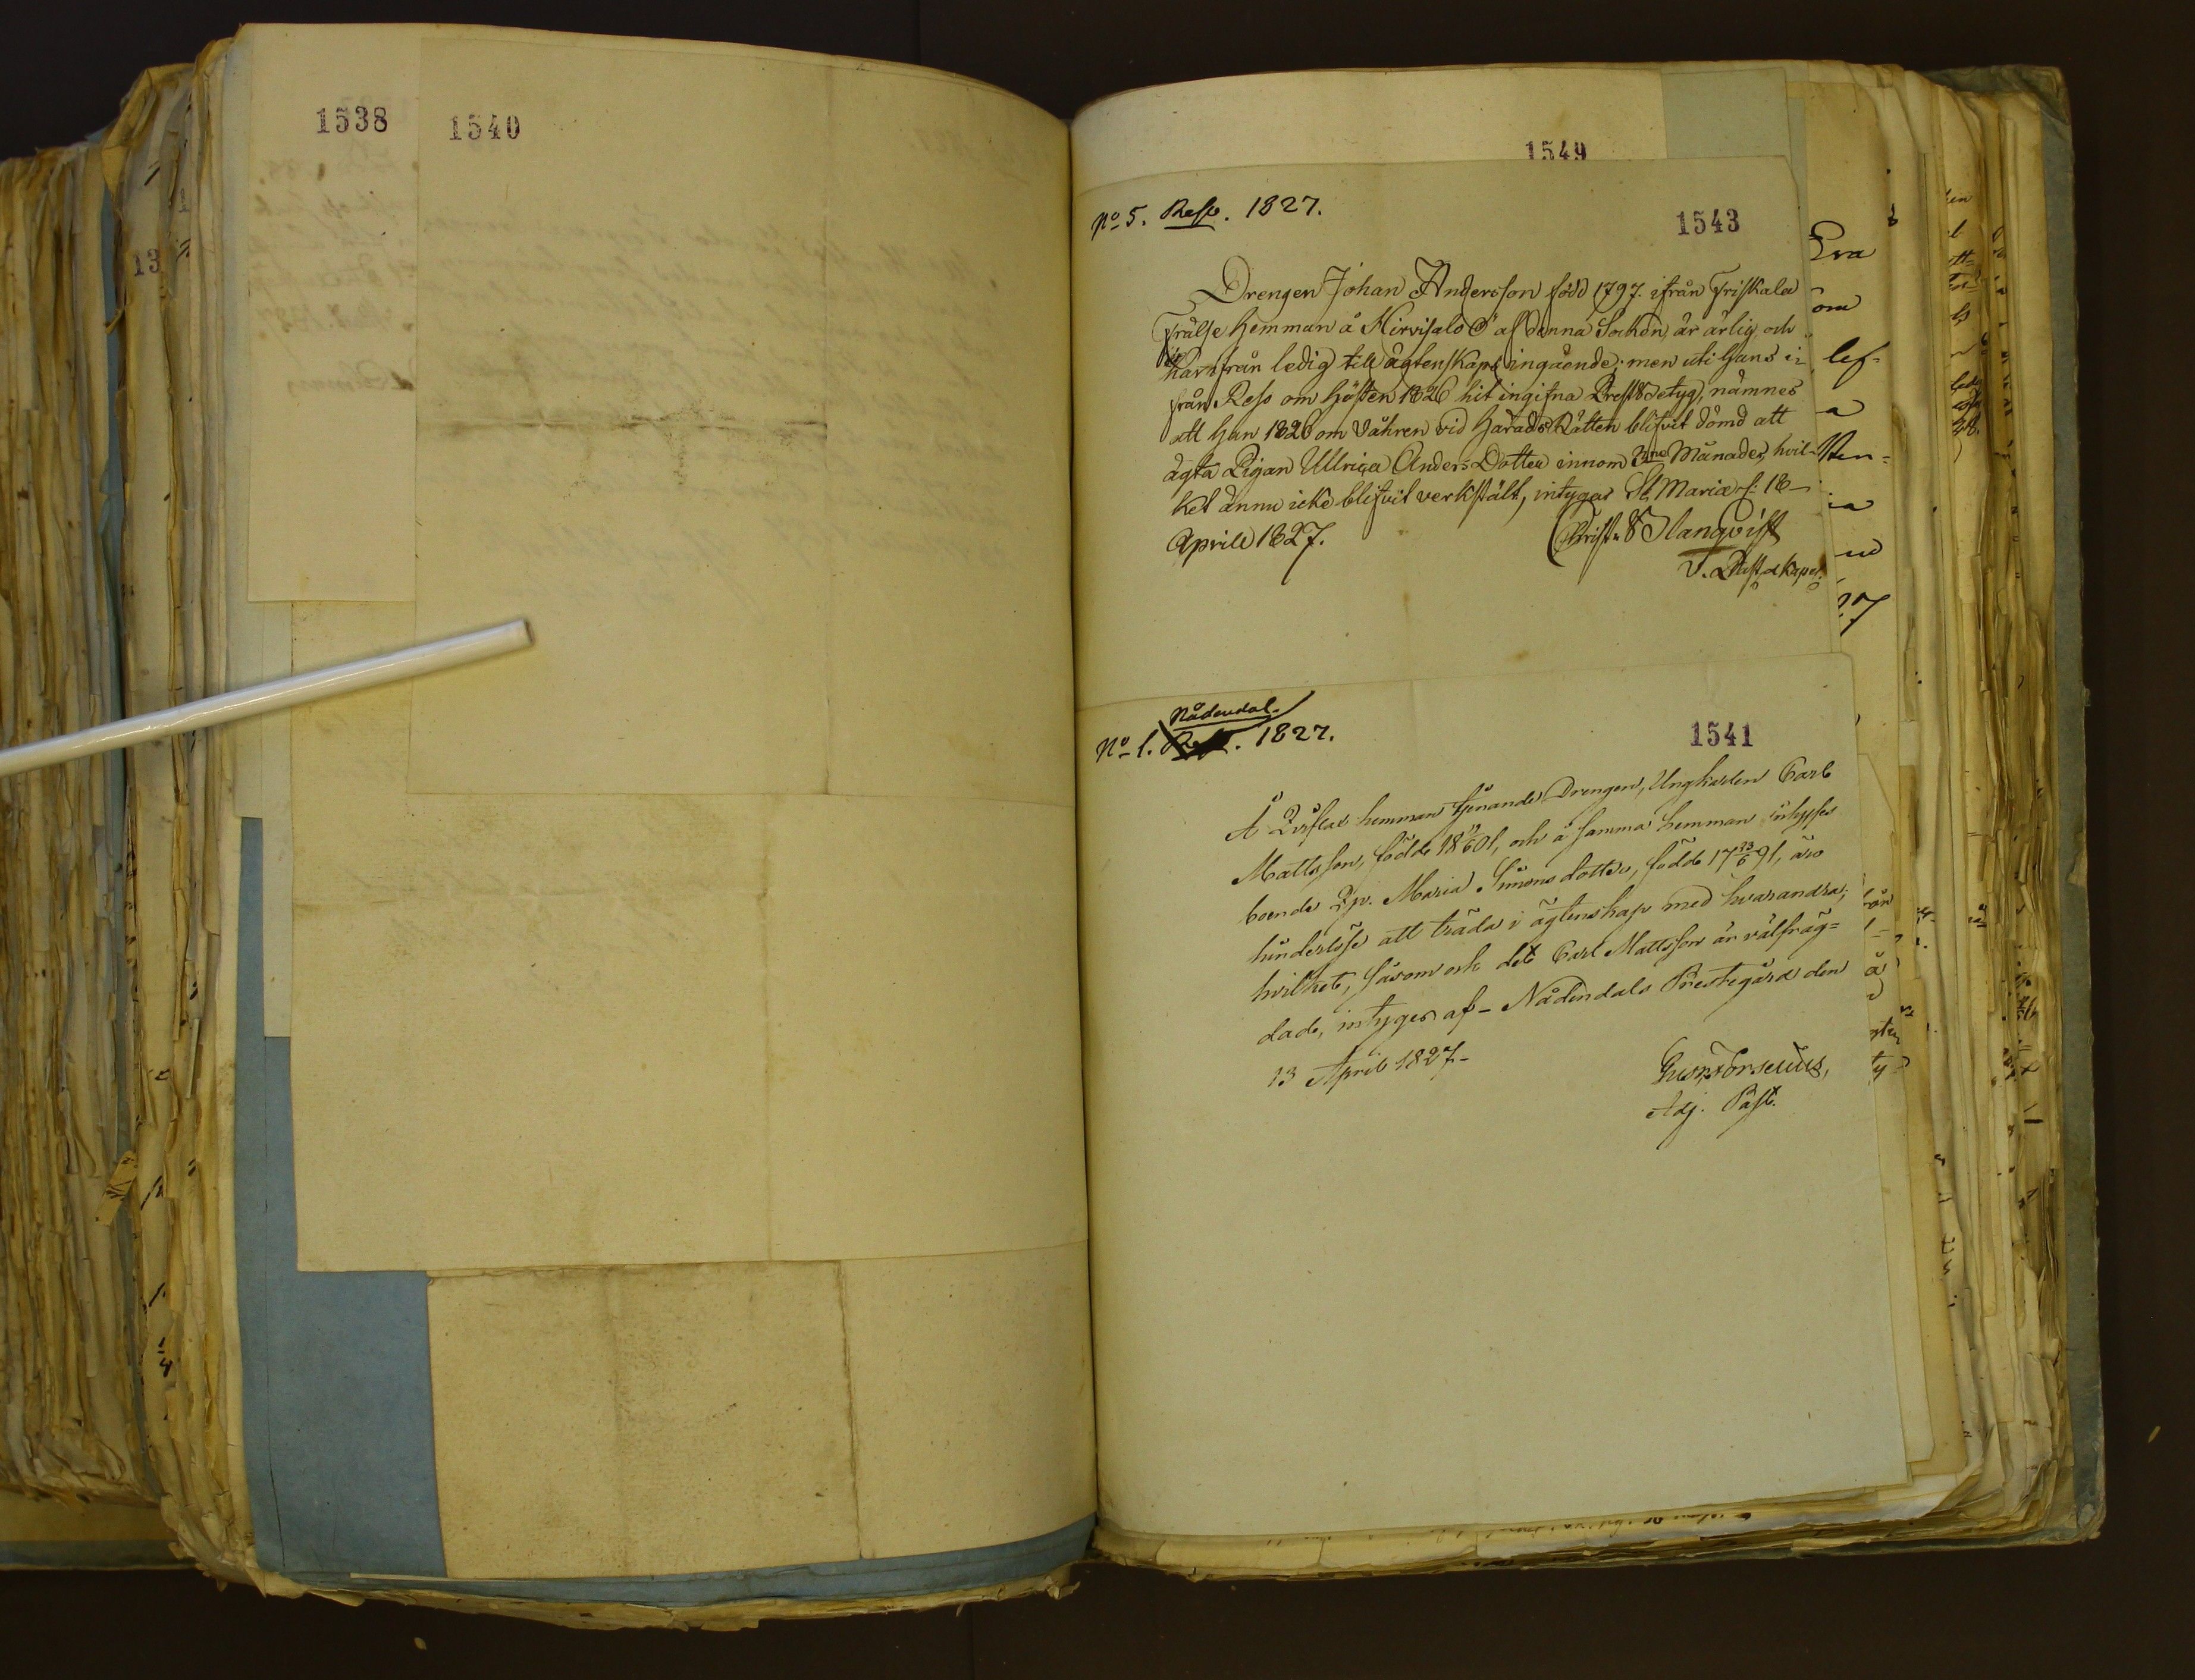 1538
1540
13
1549
No 5. Reso. 1827.
1543
Drengen Johan Andersson född 1797. ifrån Friskala
Frälse Hemman å Hirvisalo Ö af denna Socken, är ärlig och
härifrån ledig till ägtenskaps ingående; men uti Hans i=
från Reso om Hösten 1826 hit ingifna Prestbetyg, nämnes
att Han 1826 om Våhren vid HäradsRätten blifvit dömd att
ägta Pigan Ullrica Anders Dotter innom 3ne Månader, hvil-
ket ännu icke blifvit verkstält, intygar St Mariæ f: 18
Aprill 1827.
Christ. Slangvist
V. Past. & Kapel.
Eva
om
lef=
a
ia
27
Nådendal.
No 1. 1827.
1541
Å hemman tjenande Drengen, Ungkarlen Carl
Mattsson, född 18 01, och å samma hemman inhyses
boende Maria Simonsdotter, född 17 23/6 91, äro
hinderlöse att träda i ägtenskap med hvarandra;
hvilket, såsom ock det Carl Mattsson är välfräg=
dade, intygas af Nådendals Prestegård den
13 April 1827.
Adj. Past.